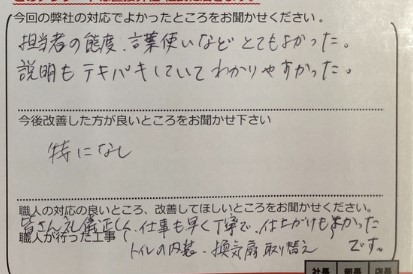 今回の弊社の対応でよかったところをお聞かせください。
担当者の態度、言葉使いなど とてもよかった。
説明も テキパキしていて わかりやすかった。
今後改善した方が良いところをお聞かせ下さい
特になし
職人の対応の良いところ、改善してほしいところをお聞かせください。
皆さん礼儀正しく、仕事も早く丁寧で、仕上がりもよかった
です。
職人が行った工事
トイレの内装、換気扇 取り替え
社長
部長
店長